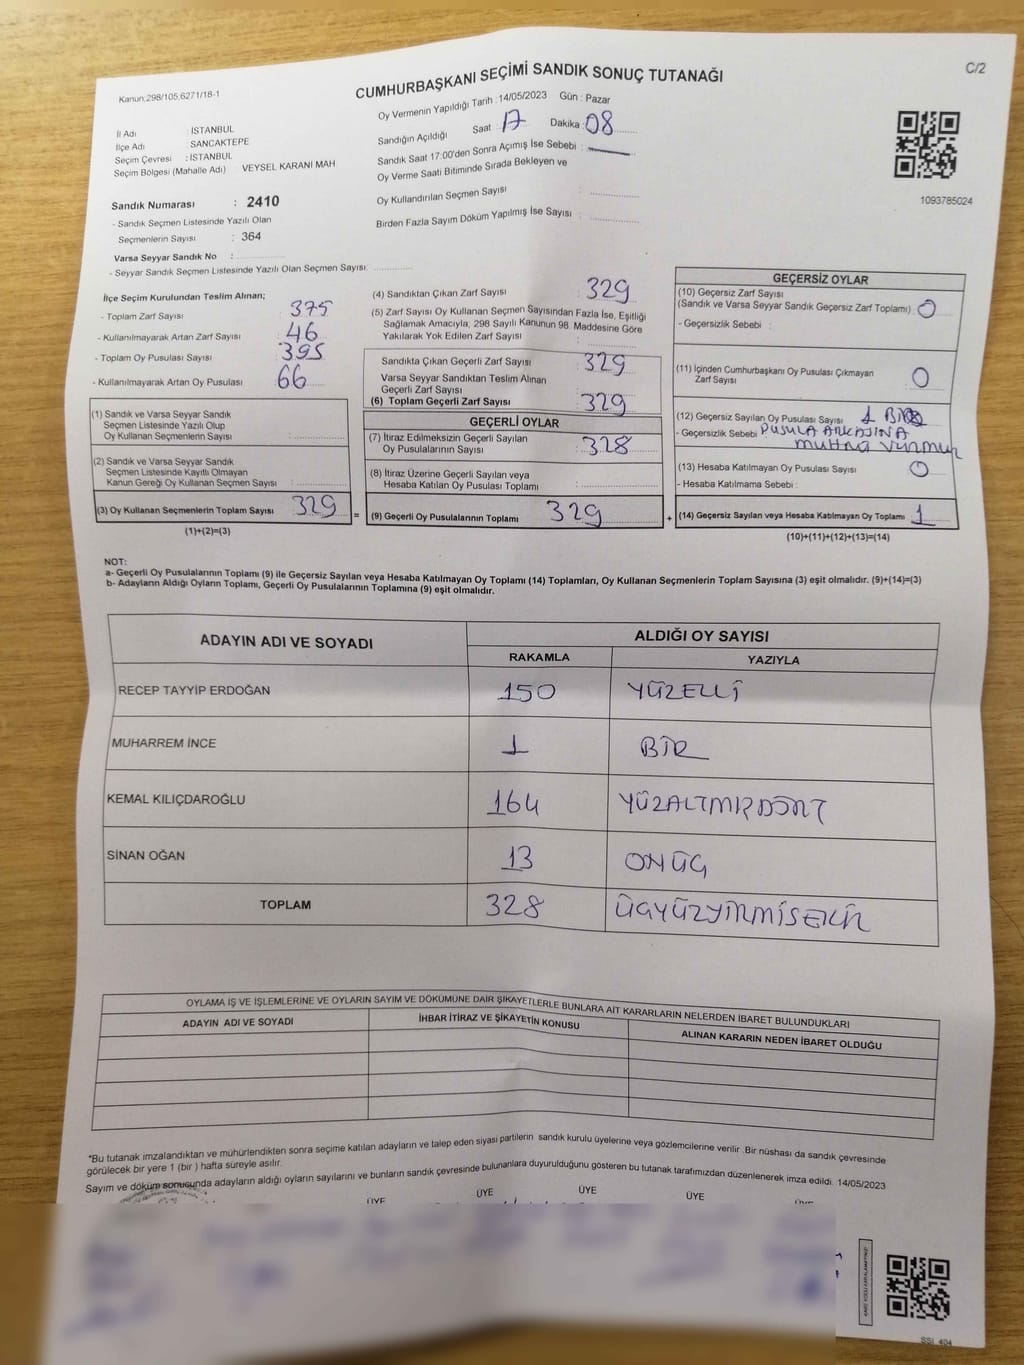 C/2
Kanun;298/105;6271/18-1
CUMHURBAŞKANI SEÇİMİ SANDIK SONUÇ TUTANAĞI
İl Adı : İSTANBUL
İlçe Adı SANCAKTEPE
Seçim Çevresi : İSTANBUL
Seçim Bölgesi (Mahalle Adı) VEYSEL KARANI MAH
Sandık Numarası : 2410
- Sandık Seçmen Listesinde Yazılı Olan
Seçmenlerin Sayısı : 364
Varsa Seyyar Sandık No :
- Seyyar Sandık Seçmen Listesinde Yazılı Olan Seçmen Sayısı:
Oy Vermenin Yapıldığı Tarih :14/05/2023 Gün : Pazar
Sandığın Açıldığı Saat 17 Dakika :08
Sandık Saat 17:00'den Sonra Açımış İse Sebebi :
Oy Verme Saati Bitiminde Sırada Bekleyen ve
Oy Kullandırılan Seçmen Sayısı :
Birden Fazla Sayım Döküm Yapılmış İse Sayısı :
1093785024
İlçe Seçim Kurulundan Teslim Alınan;
- Toplam Zarf Sayısı : 375
- Kullanılmayarak Artan Zarf Sayısı : 46
- Toplam Oy Pusulası Sayısı : 395
- Kullanılmayarak Artan Oy Pusulası : 66
(1) Sandık ve Varsa Seyyar Sandık
Seçmen Listesinde Yazılı Olup
Oy Kullanan Seçmenlerin Sayısı :
(2) Sandık ve Varsa Seyyar Sandık
Seçmen Listesinde Kayıtlı Olmayan
Kanun Gereği Oy Kullanan Seçmen Sayısı :
(3) Oy Kullanan Seçmenlerin Toplam Sayısı 329
(1)+(2)=(3)
=
(4) Sandıktan Çıkan Zarf Sayısı : 329
(5) Zarf Sayısı Oy Kullanan Seçmen Sayısından Fazla İse, Eşitliği
Sağlamak Amacıyla, 298 Sayılı Kanunun 98. Maddesine Göre
Yakılarak Yok Edilen Zarf Sayısı :
Sandıkta Çıkan Geçerli Zarf Sayısı : 329
Varsa Seyyar Sandıktan Teslim Alınan
Geçerli Zarf Sayısı :
(6) Toplam Geçerli Zarf Sayısı : 329
GEÇERLİ OYLAR
(7) İtiraz Edilmeksizin Geçerli Sayılan
Oy Pusulalarının Sayısı : 328
(8) İtiraz Üzerine Geçerli Sayılan veya
Hesaba Katılan Oy Pusulası Toplamı :
(9) Geçerli Oy Pusulalarının Toplamı 329
+
GEÇERSİZ OYLAR
(10) Geçersiz Zarf Sayısı
(Sandık ve Varsa Seyyar Sandık Geçersiz Zarf Toplamı) : 0
- Geçersizlik Sebebi :
(11) İçinden Cumhurbaşkanı Oy Pusulası Çıkmayan
Zarf Sayısı : 0
(12) Geçersiz Sayılan Oy Pusulası Sayısı : 1 BİR
- Geçersizlik Sebebi PUSULA ARKASINA
MÜHÜR VURMUŞ
(13) Hesaba Katılmayan Oy Pusulası Sayısı : 0
- Hesaba Katılmama Sebebi :
(14) Geçersiz Sayılan veya Hesaba Katılmayan Oy Toplamı : 1
(10)+(11)+(12)+(13)=(14)
NOT:
a- Geçerli Oy Pusulalarının Toplamı (9) ile Geçersiz Sayılan veya Hesaba Katılmayan Oy Toplamı (14) Toplamları, Oy Kullanan Seçmenlerin Toplam Sayısına (3) eşit olmalıdır. (9)+(14)=(3)
b- Adayların Aldığı Oyların Toplamı, Geçerli Oy Pusulalarının Toplamına (9) eşit olmalıdır.
ADAYIN ADI VE SOYADI ALDIĞI OY SAYISI
RAKAMLA YAZIYLA
RECEP TAYYİP ERDOĞAN 150 YÜZELLİ
MUHARREM İNCE 1 BİR
KEMAL KILIÇDAROĞLU 164 YÜZALTMIŞDÖRT
SİNAN OĞAN 13 ONÜÇ
TOPLAM 328 ÜÇYÜZYİRMİSEKİZ
OYLAMA İŞ VE İŞLEMLERİNE VE OYLARIN SAYIM VE DÖKÜMÜNE DAİR ŞİKAYETLERLE BUNLARA AİT KARARLARIN NELERDEN İBARET BULUNDUKLARI
ADAYIN ADI VE SOYADI İHBAR İTİRAZ VE ŞİKAYETİN KONUSU ALINAN KARARIN NEDEN İBARET OLDUĞU
*Bu tutanak imzalandıktan ve mühürlendikten sonra seçime katılan adayların ve talep eden siyasi partilerin sandık kurulu üyelerine veya gözlemcilerine verilir .Bir nüshası da sandık çevresinde
görülecek bir yere 1 (bir ) hafta süreyle asılır.
Sayım ve döküm sonucunda adayların aldığı oyların sayılarını ve bunların sandık çevresinde bulunanlara duyurulduğunu gösteren bu tutanak tarafımızdan düzenlenerek imza edildi. 14/05/2023
ÜYE ÜYE ÜYE ÜYE ÜYE